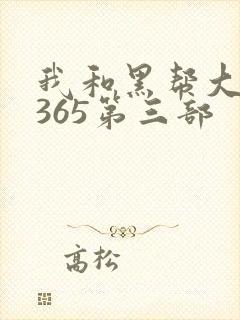 我和黑帮大
365第三部
高松